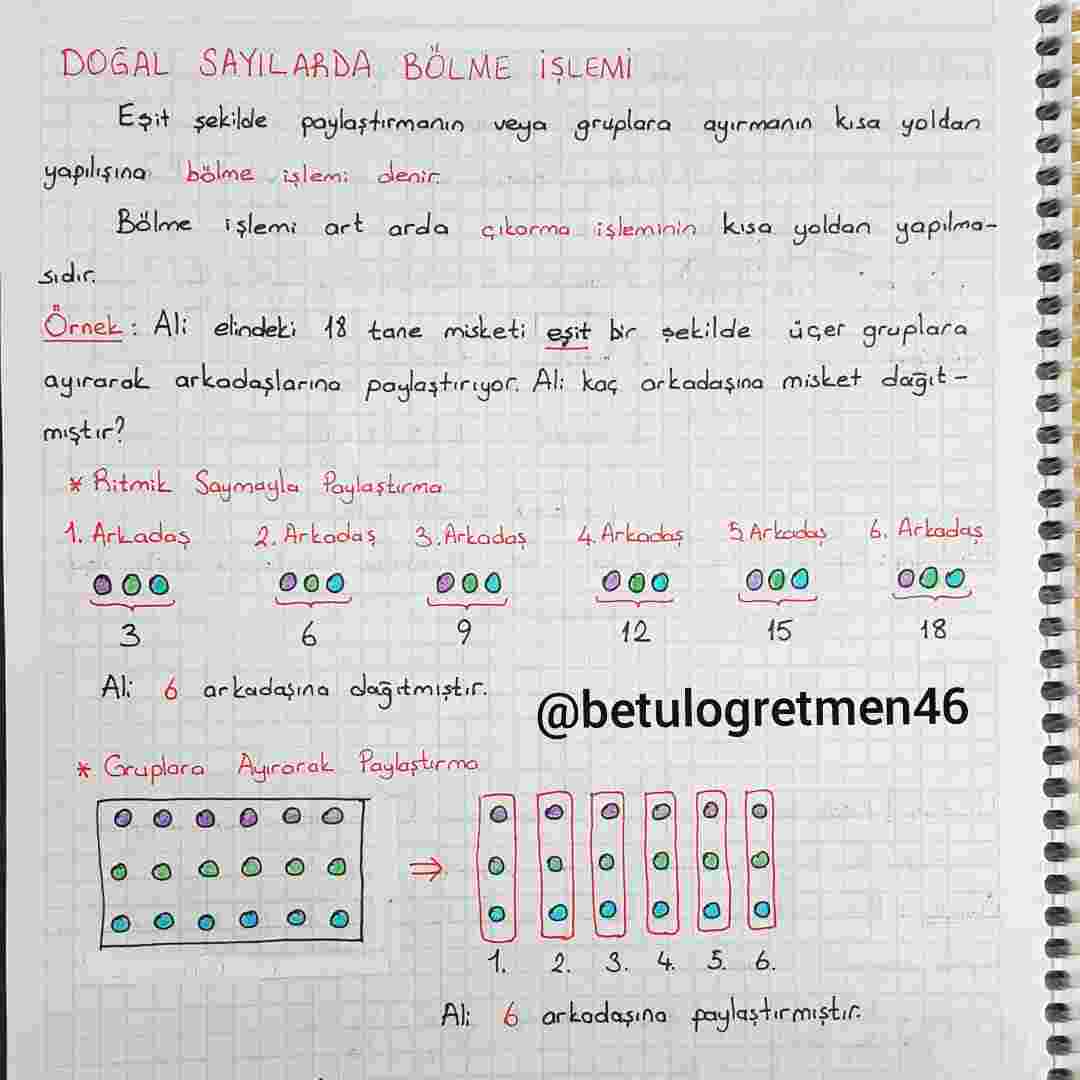 DOĞAL SAYILARDA BÖLME İŞLEMİ
Eşit şekilde paylaştırmanın veya gruplara ayırmanın kısa yoldan
yapılışına bölme işlemi denir.
Bölme işlemi art arda çıkarma işleminin kısa yoldan yapılma-
sıdır.
Örnek: Ali elindeki 18 tane misketi eşit bir şekilde üçer gruplara
ayırarak arkadaşlarına paylaştırıyor. Ali kaç arkadaşına misket dağıt-
mıştır?
* Ritmik Saymayla Paylaştırma
1. Arkadaş 2. Arkadaş 3. Arkadaş 4. Arkadaş 5. Arkadaş 6. Arkadaş
3 6 9 12 15 18
Ali 6 arkadaşına dağıtmıştır.
@betulogretmen46
* Gruplara Ayırarak Paylaştırma
1. 2. 3. 4. 5. 6.
Ali 6 arkadaşına paylaştırmıştır.